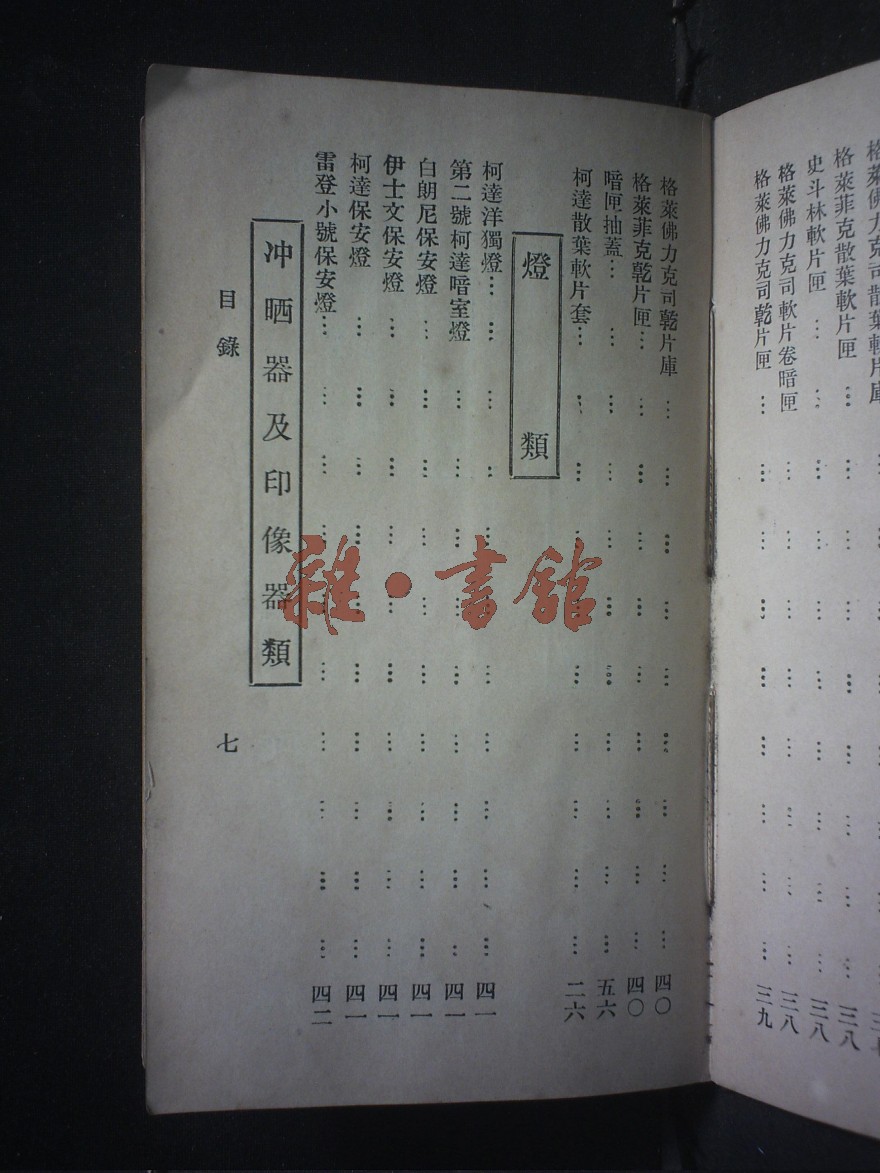 格萊佛力克司散葉軟片庫
格萊菲克散葉軟片匣 三八
史斗林軟片匣 三八
格萊佛力克司軟片卷暗匣 三八
格萊佛力克司乾片匣 三九
格萊佛力克司乾片庫 四〇
格萊菲克乾片匣 四〇
暗匣抽蓋 五六
柯達散葉軟片套 二六
燈類
柯達洋獨燈 四一
第二號柯達喑室燈 四一
白朗尼保安燈 四一
伊士文保安燈 四一
柯達保安燈 四一
雷登小號保安燈 四二
冲晒器及印像器類
目錄 七
雜·書館